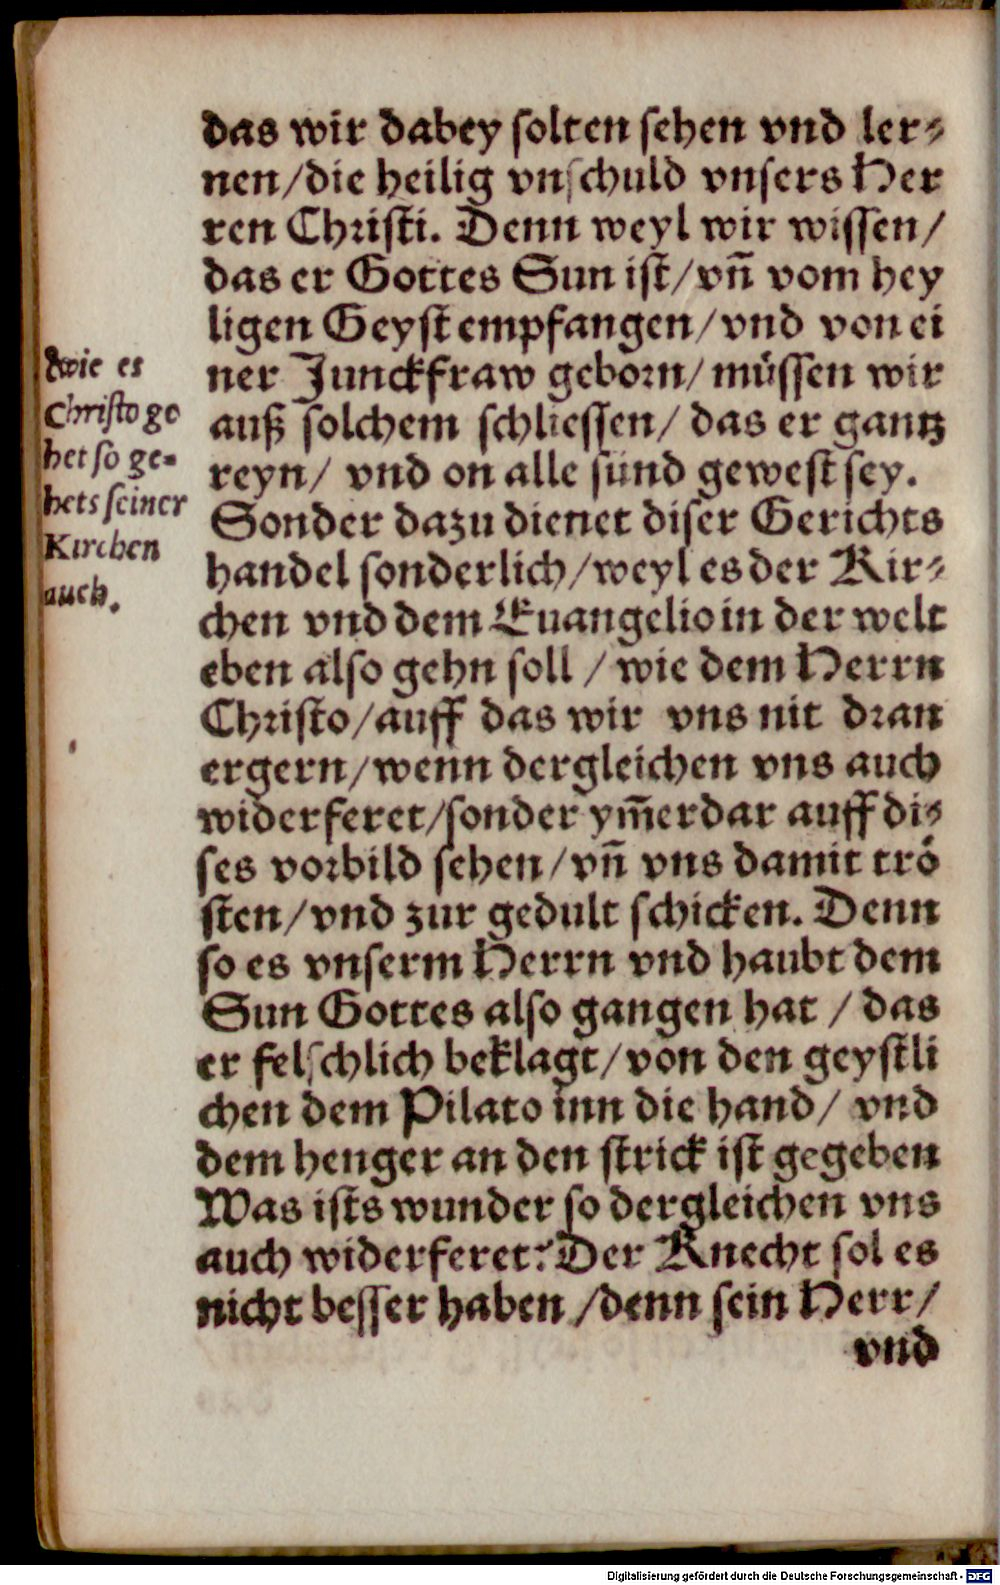 das wir dabey ſolten ſehen vnd ler⸗
nen/die heilig vnſchuld vnſers Her
ren Chriſti. Denn weyl wir wiſſen/
das er Gottes Sun iſt/vn̄ vom hey
ligen Geyſt empfangen/vnd von ei
ner Junckfraw geborn/müſſen wir
auß ſolchem ſchlieſſen/ das er gantz
reyn/ vnd on alle ſünd geweſt ſey.
Sonder dazu dienet diſer Gerichts
handel ſonderlich/weyl es der Kir⸗
chen vnd dem Euangelio in der welt
eben alſo gehn ſoll / wie dem Herrn
Chriſto/auff das wir vns nit dran
ergern/wenn dergleichen vns auch
widerferet/ſonder ym̄erdar auff di⸗
ſes vorbild ſehen/vn̄ vns damit trö
ſten/vnd zur gedult ſchicken. Denn
ſo es vnſerm Herrn vnd haubt dem
Sun Gottes alſo gangen hat / das
er felſchlich beklagt/von den geyſtli
chen dem Pilato inn die hand/ vnd
dem henger an den ſtrick iſt gegeben
Was iſts wunder ſo dergleichen vns
auch widerferet? Der Knecht ſol es
nicht beſſer haben /denn ſein Herr/
vnd
Wie es
Chriſto ge
het ſo ge⸗
hets ſeiner
Kirchen
auch.
Digitalisierung gefördert durch die Deutsche Forschungsgemeinschaft - DFG